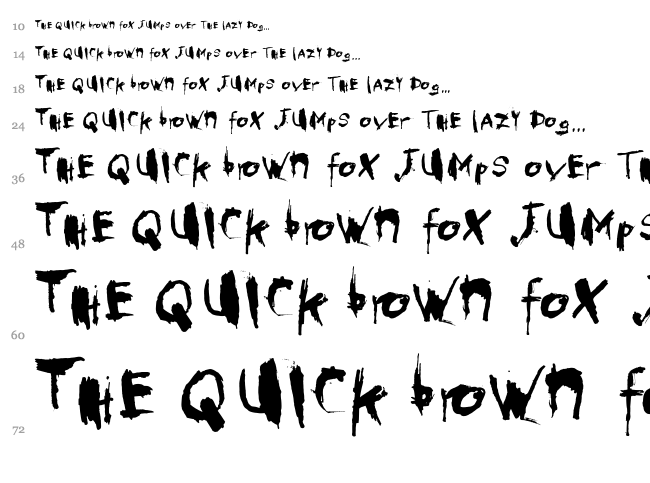 10 THE QUICk brown foX JUMpS ovEr THE lAZY Dog...
14 THE QUICk brown foX JUMpS ovEr THE lAZY Dog...
18 THE QUICk brown foX JUMpS ovEr THE lAZY Dog...
24 THE QUICk brown foX JUMpS ovEr THE lAZY Dog...
36 THE QUICk brown foX JUMpS ovEr TH
48 THE QUICk brown foX JUMpS
60 THE QUICk brown foX J
72 THE QUICk brown fo